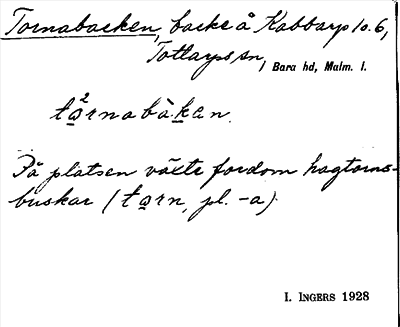 Tornabacken, backe å Kabbarp 10.6,
Tottarps sn, Bara hd, Malm. l.
tå²rnabàkan.
På platsen växte fordom hagtorns-
buskar (tårn, pl. -a).
I. INGERS 1928